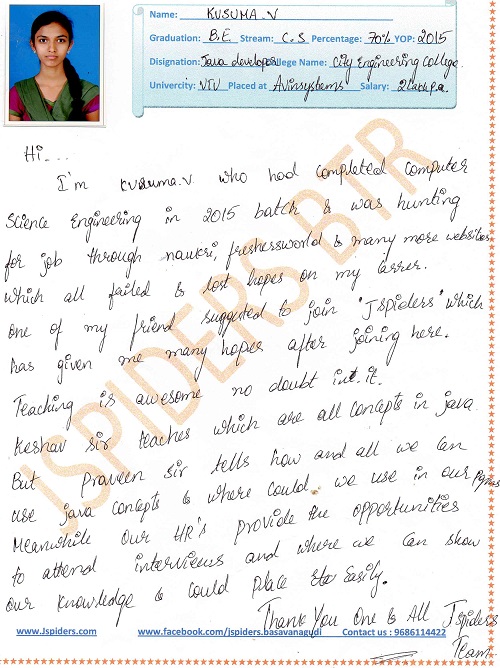 Name: KUSUMA.V
Graduation: B.E Stream: C.S Percentage: 70% YOP: 2015
Disignation: Java developer College Name: City Engineering College
Univercity: VTU Placed at Avinsystems Salary: 2 Lack P.a.
Hi....
I'm KUSUMA.V who had completed computer
Science Engineering in 2015 batch & was hunting
for job through naukri, freshersworld & many more websites
which all failed & lost hopes on my carrer.
one of my friend suggested to join "Jspiders" which
has given me many hopes after joining here.
Teaching is awesome no doubt in it.
Keshav sir teaches which are all concepts in java
But praveen sir tells how and all we can
use java concepts & where could we use in our
Meanwhile our HR's provide the opportunities
to attend interviews and where we can show
our knowledge & could place easily.
Thank You One & All Jspiders
Team
www.Jspiders.com www.facebook.com/jspiders.basavanagudi Contact us : 9686114422
JSPIDERS BTR